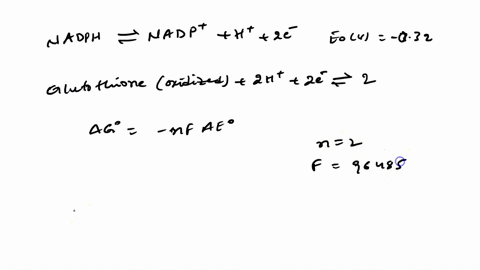 NADPH ⇌ NADP⁺ + H⁺ + 2e⁻ E₀(V) = -0.32
Glutothione (oxidized) + 2H⁺ + 2e⁻ ⇌ 2
ΔG° = -nFΔE°
n = 2
F = 96485